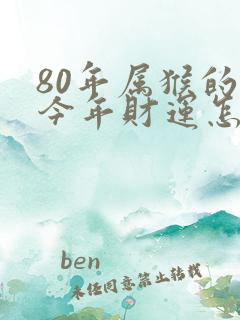 80年属猴的
今年财运怎
ben
未经同意禁止转载